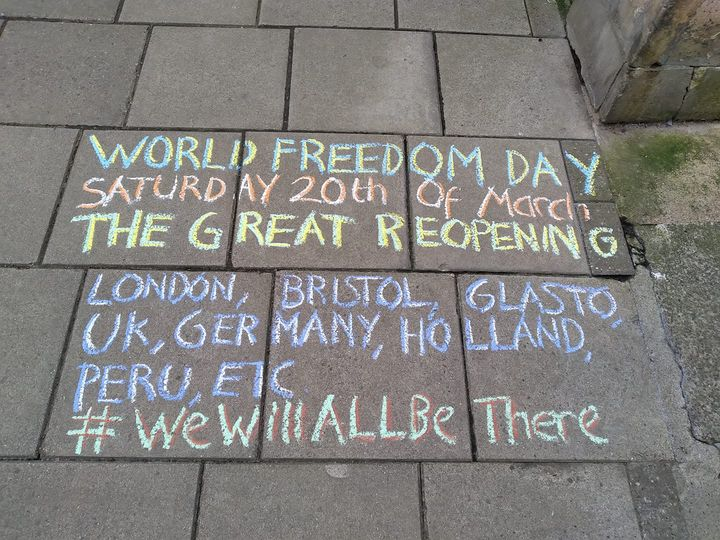 WORLD FREEDOM DAY
SATURDAY 20th Of March
THE GREAT REOPENING
LONDON, BRISTOL, GLASTO,
UK, GERMANY, HOLLAND,
PERU, ETC
#WeWillALLBe There